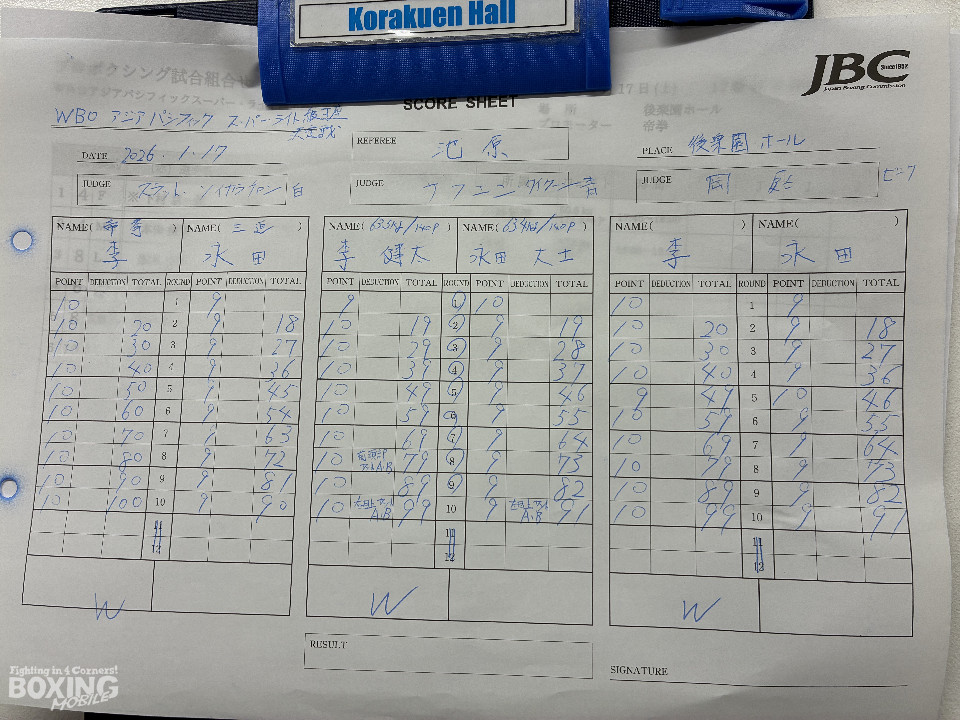 Korakuen Hall
JBC
Since1952
Japan Boxing Commission
SCORE SHEET
WBO アジアパシフィック スーパーライト級王座
決定戦
DATE 2026.1.17
REFEREE 池原
PLACE 後楽園ホール
JUDGE 白
JUDGE
JUDGE 岡 ピンク
NAME( 帝拳 ) NAME( 三迫 )
李 永田
POINT DEDUCTION TOTAL ROUND POINT DEDUCTION TOTAL
10 1 9
10 20 2 9 18
10 30 3 9 27
10 40 4 9 36
10 50 5 9 45
10 60 6 9 54
10 70 7 9 63
10 80 8 9 72
10 90 9 9 81
10 100 10 9 90
11
12
W
NAME( 63.5kg/140P ) NAME( 63.4kg/140P )
李 健太 永田 大士
POINT DEDUCTION TOTAL ROUND POINT DEDUCTION TOTAL
9 1 10
10 19 2 9 19
10 29 3 9 28
10 39 4 9 37
10 49 5 9 46
10 59 6 9 55
10 69 7 9 64
10 A.B 79 8 9 73
10 89 9 9 82
10 A.B 99 10 9 A.B 91
11
12
W
NAME( ) NAME( )
李 永田
POINT DEDUCTION TOTAL ROUND POINT DEDUCTION TOTAL
10 1 9
10 20 2 9 18
10 30 3 9 27
10 40 4 9 36
9 49 5 10 46
10 59 6 9 55
10 69 7 9 64
10 79 8 9 73
10 89 9 9 82
10 99 10 9 91
11
12
W
RESULT
SIGNATURE
Fighting in 4 Corners!
BOXING
MOBILE